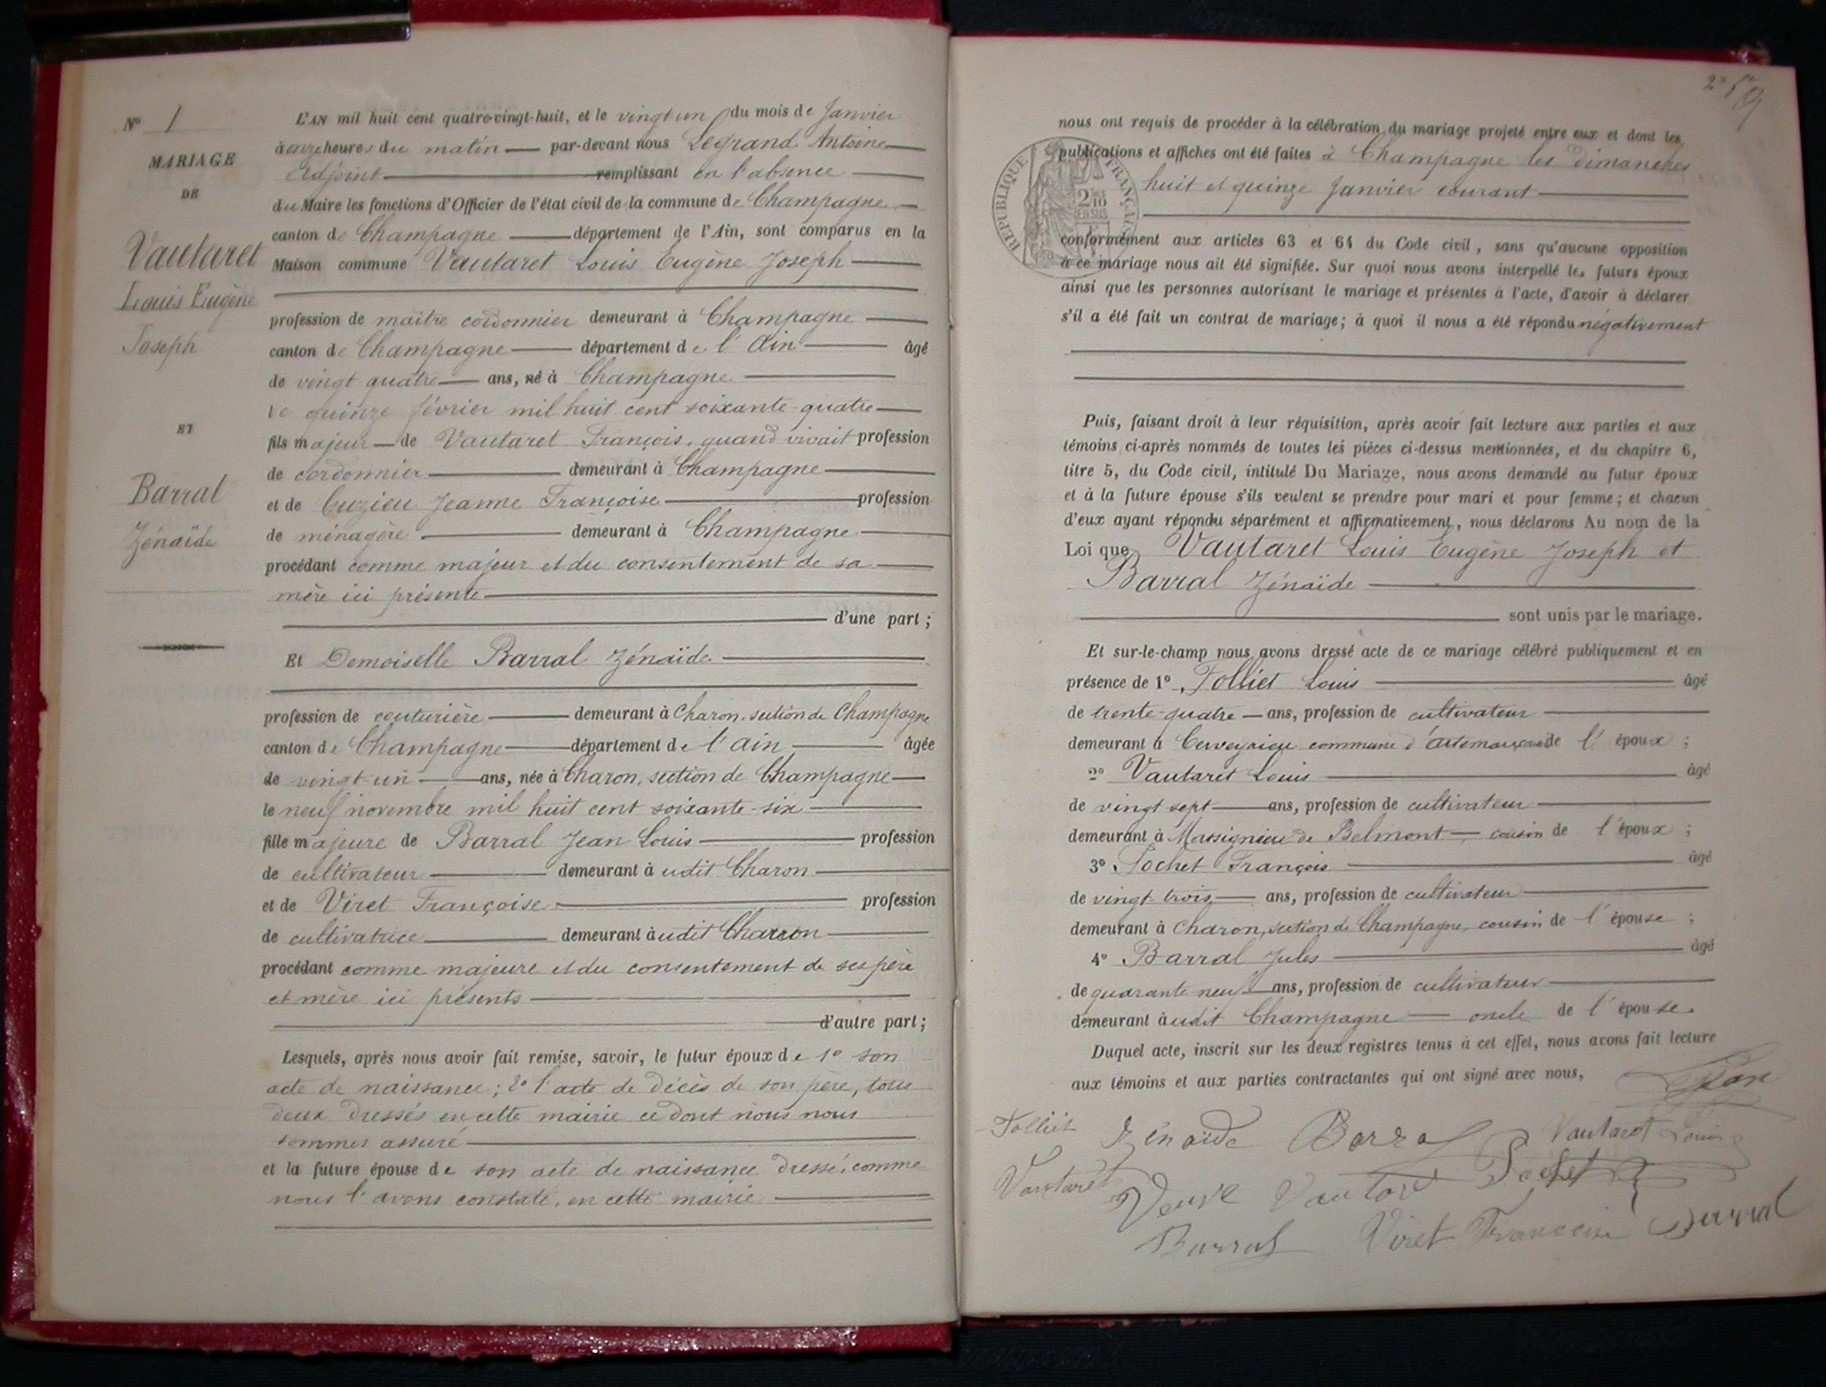 Nº 1
MARIAGE
DE
Vautaret
Louis Eugène
Joseph
ET
Barral
Zénaïde
L'AN mil huit cent quatre-vingt-huit, et le vingt un du mois de Janvier
à onze heures du matin par-devant nous Legrand Antoine
Adjoint remplissant en l'absence
du Maire les fonctions d'Officier de l'état civil de la commune de Champagne
canton de Champagne département de l'Ain, sont comparus en la
Maison commune Vautaret Louis Eugène Joseph
profession de maître cordonnier demeurant à Champagne
canton de Champagne département de l'Ain âgé
de vingt quatre ans, né à Champagne
le quinze février mil huit cent soixante-quatre
fils majeur de Vautaret François, quand vivait profession
de cordonnier demeurant à Champagne
et de Cuzieu Jeanne Françoise profession
de ménagère demeurant à Champagne
procédant comme majeur et du consentement de sa
mère ici présente
d'une part ;
Et Demoiselle Barral Zénaïde
profession de couturière demeurant à Charon, section de Champagne
canton de Champagne département de l'ain âgée
de vingt un ans, née à Charon, section de Champagne
le neuf novembre mil huit cent soixante-six
fille majeure de Barral Jean Louis profession
de cultivateur demeurant à udit Charon
et de Viret Françoise profession
de cultivatrice demeurant à udit Charron
procédant comme majeure et du consentement de ses père
et mère ici présents
d'autre part ;
Lesquels, après nous avoir fait remise, savoir, le futur époux de 1º son
acte de naissance ; 2º l'acte de décès de son père, tous
deux dressés en cette mairie ce dont nous nous
sommes assuré
et la future épouse de son acte de naissance dressé, comme
nous l'avons constaté, en cette mairie
nous ont requis de procéder à la célébration du mariage projeté entre eux et dont les
publications et affiches ont été faites à Champagne les dimanches
huit et quinze Janvier courant
RÉPUBLIQUE FRANÇAISE
2/10
EN SUS
conformément aux articles 63 et 64 du Code civil, sans qu'aucune opposition
à ce mariage nous ait été signifiée. Sur quoi nous avons interpellé les futurs époux
ainsi que les personnes autorisant le mariage et présentes à l'acte, d'avoir à déclarer
s'il a été fait un contrat de mariage ; à quoi il nous a été répondu négativement
Puis, faisant droit à leur réquisition, après avoir fait lecture aux parties et aux
témoins ci-après nommés de toutes les pièces ci-dessus mentionnées, et du chapitre 6,
titre 5, du Code civil, intitulé Du Mariage, nous avons demandé au futur époux
et à la future épouse s'ils veulent se prendre pour mari et pour femme ; et chacun
d'eux ayant répondu séparément et affirmativement, nous déclarons Au nom de la
Loi que Vautaret Louis Eugène Joseph et
Barral Zénaïde
sont unis par le mariage.
Et sur-le-champ nous avons dressé acte de ce mariage célébré publiquement et en
présence de 1º Folliet Louis âgé
de trente-quatre ans, profession de cultivateur
demeurant à Cerveyrieu commune d'Artemare de l'époux ;
2º Vautaret Louis âgé
de vingt sept ans, profession de cultivateur
demeurant à Massignieu de Belmont cousin de l'époux ;
3º Pochet François âgé
de vingt trois ans, profession de cultivateur
demeurant à Charon, section de Champagne, cousin de l'épouse ;
4º Barral Jules âgé
de quarante neuf ans, profession de cultivateur
demeurant à udit Champagne oncle de l'épouse
Duquel acte, inscrit sur les deux registres tenus à cet effet, nous avons fait lecture
aux témoins et aux parties contractantes qui ont signé avec nous,
Folliet Zénaïde Barral Vautaret Louis
Vautaret Veuve Vautaret Pochet
Barral Viret Françoise Barral